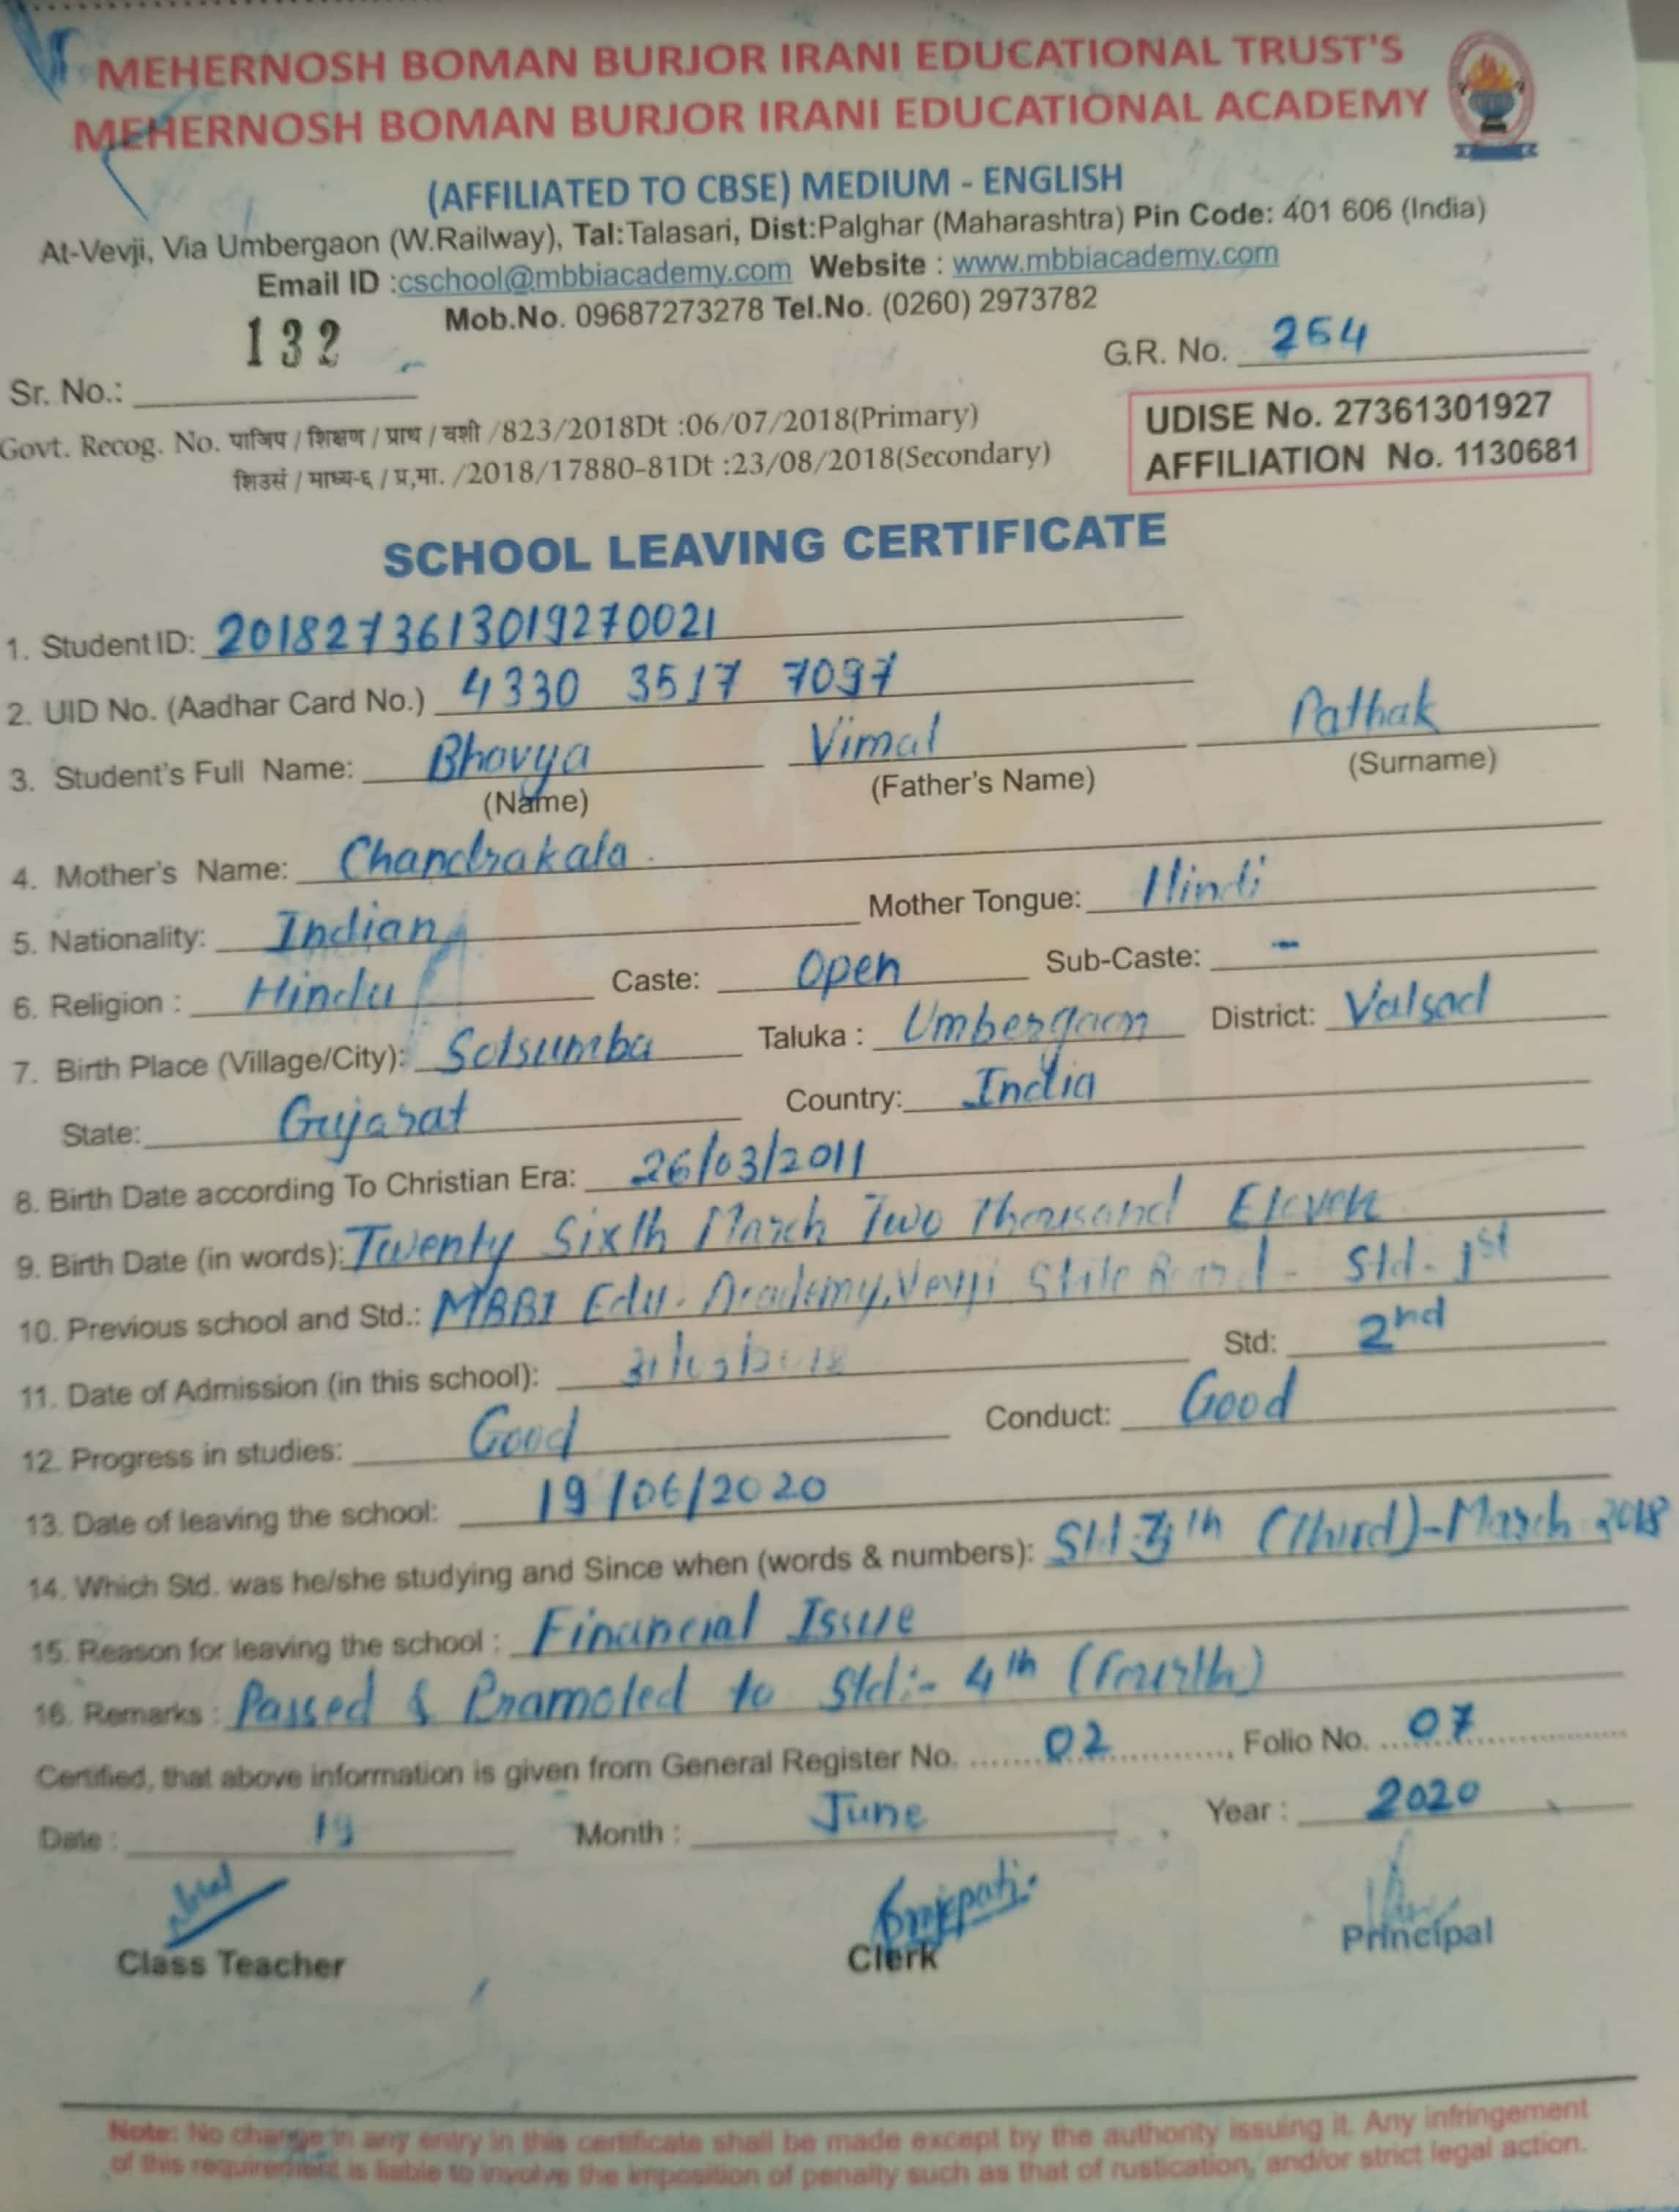 MEHERNOSH BOMAN BURJOR IRANI EDUCATIONAL TRUST'S
MEHERNOSH BOMAN BURJOR IRANI EDUCATIONAL ACADEMY
(AFFILIATED TO CBSE) MEDIUM - ENGLISH
At-Vevji, Via Umbergaon (W.Railway), Tal:Talasari, Dist:Palghar (Maharashtra) Pin Code: 401 606 (India)
Email ID :cschool@mbbiacademy.com Website : www.mbbiacademy.com
Mob.No. 09687273278 Tel.No. (0260) 2973782
Sr. No.: 132 G.R. No. 264
Govt. Recog. No. पाजिप / शिक्षण / प्राथ / वशी /823/2018Dt :06/07/2018(Primary)
शिउसं / माध्य-६ / प्र,मा. /2018/17880-81Dt :23/08/2018(Secondary)
UDISE No. 27361301927
AFFILIATION No. 1130681
SCHOOL LEAVING CERTIFICATE
1. Student ID: 2018273613019270021
2. UID No. (Aadhar Card No.) 4330 3517 7097
3. Student's Full Name: Bhavya Vimal Pathak
(Name) (Father's Name) (Surname)
4. Mother's Name: Chandrakala
5. Nationality: Indian Mother Tongue: Hindi
6. Religion : Hindu Caste: Open Sub-Caste: -
7. Birth Place (Village/City): Solsumba Taluka : Umbergaon District: Valsad
State: Gujarat Country: India
8. Birth Date according To Christian Era: 26/03/2011
9. Birth Date (in words): Twenty Sixth March Two Thousand Eleven
10. Previous school and Std.: MBBI Edu. Academy, Vevji State Board - Std. 1st
11. Date of Admission (in this school): Std: 2nd
12. Progress in studies: Good Conduct: Good
13. Date of leaving the school: 19/06/2020
14. Which Std. was he/she studying and Since when (words & numbers): Std 3th (Third)-March 2018
15. Reason for leaving the school : Financial Issue
16. Remarks : Passed & Pramoted to Std:- 4th (Fourth)
Certified, that above information is given from General Register No. ........02.............., Folio No. ...07..................
Date : 19 Month : June Year : 2020
Class Teacher Clerk Principal
Note: No change in any entry in this certificate shall be made except by the authority issuing it. Any infringement
of this requirement is liable to involve the imposition of penalty such as that of rustication, and/or strict legal action.